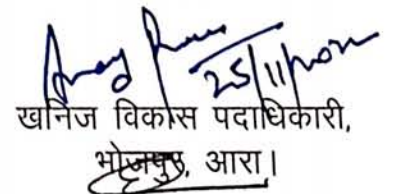 25/11/2022
खनिज विकास पदाधिकारी,
भोजपुर, आरा।